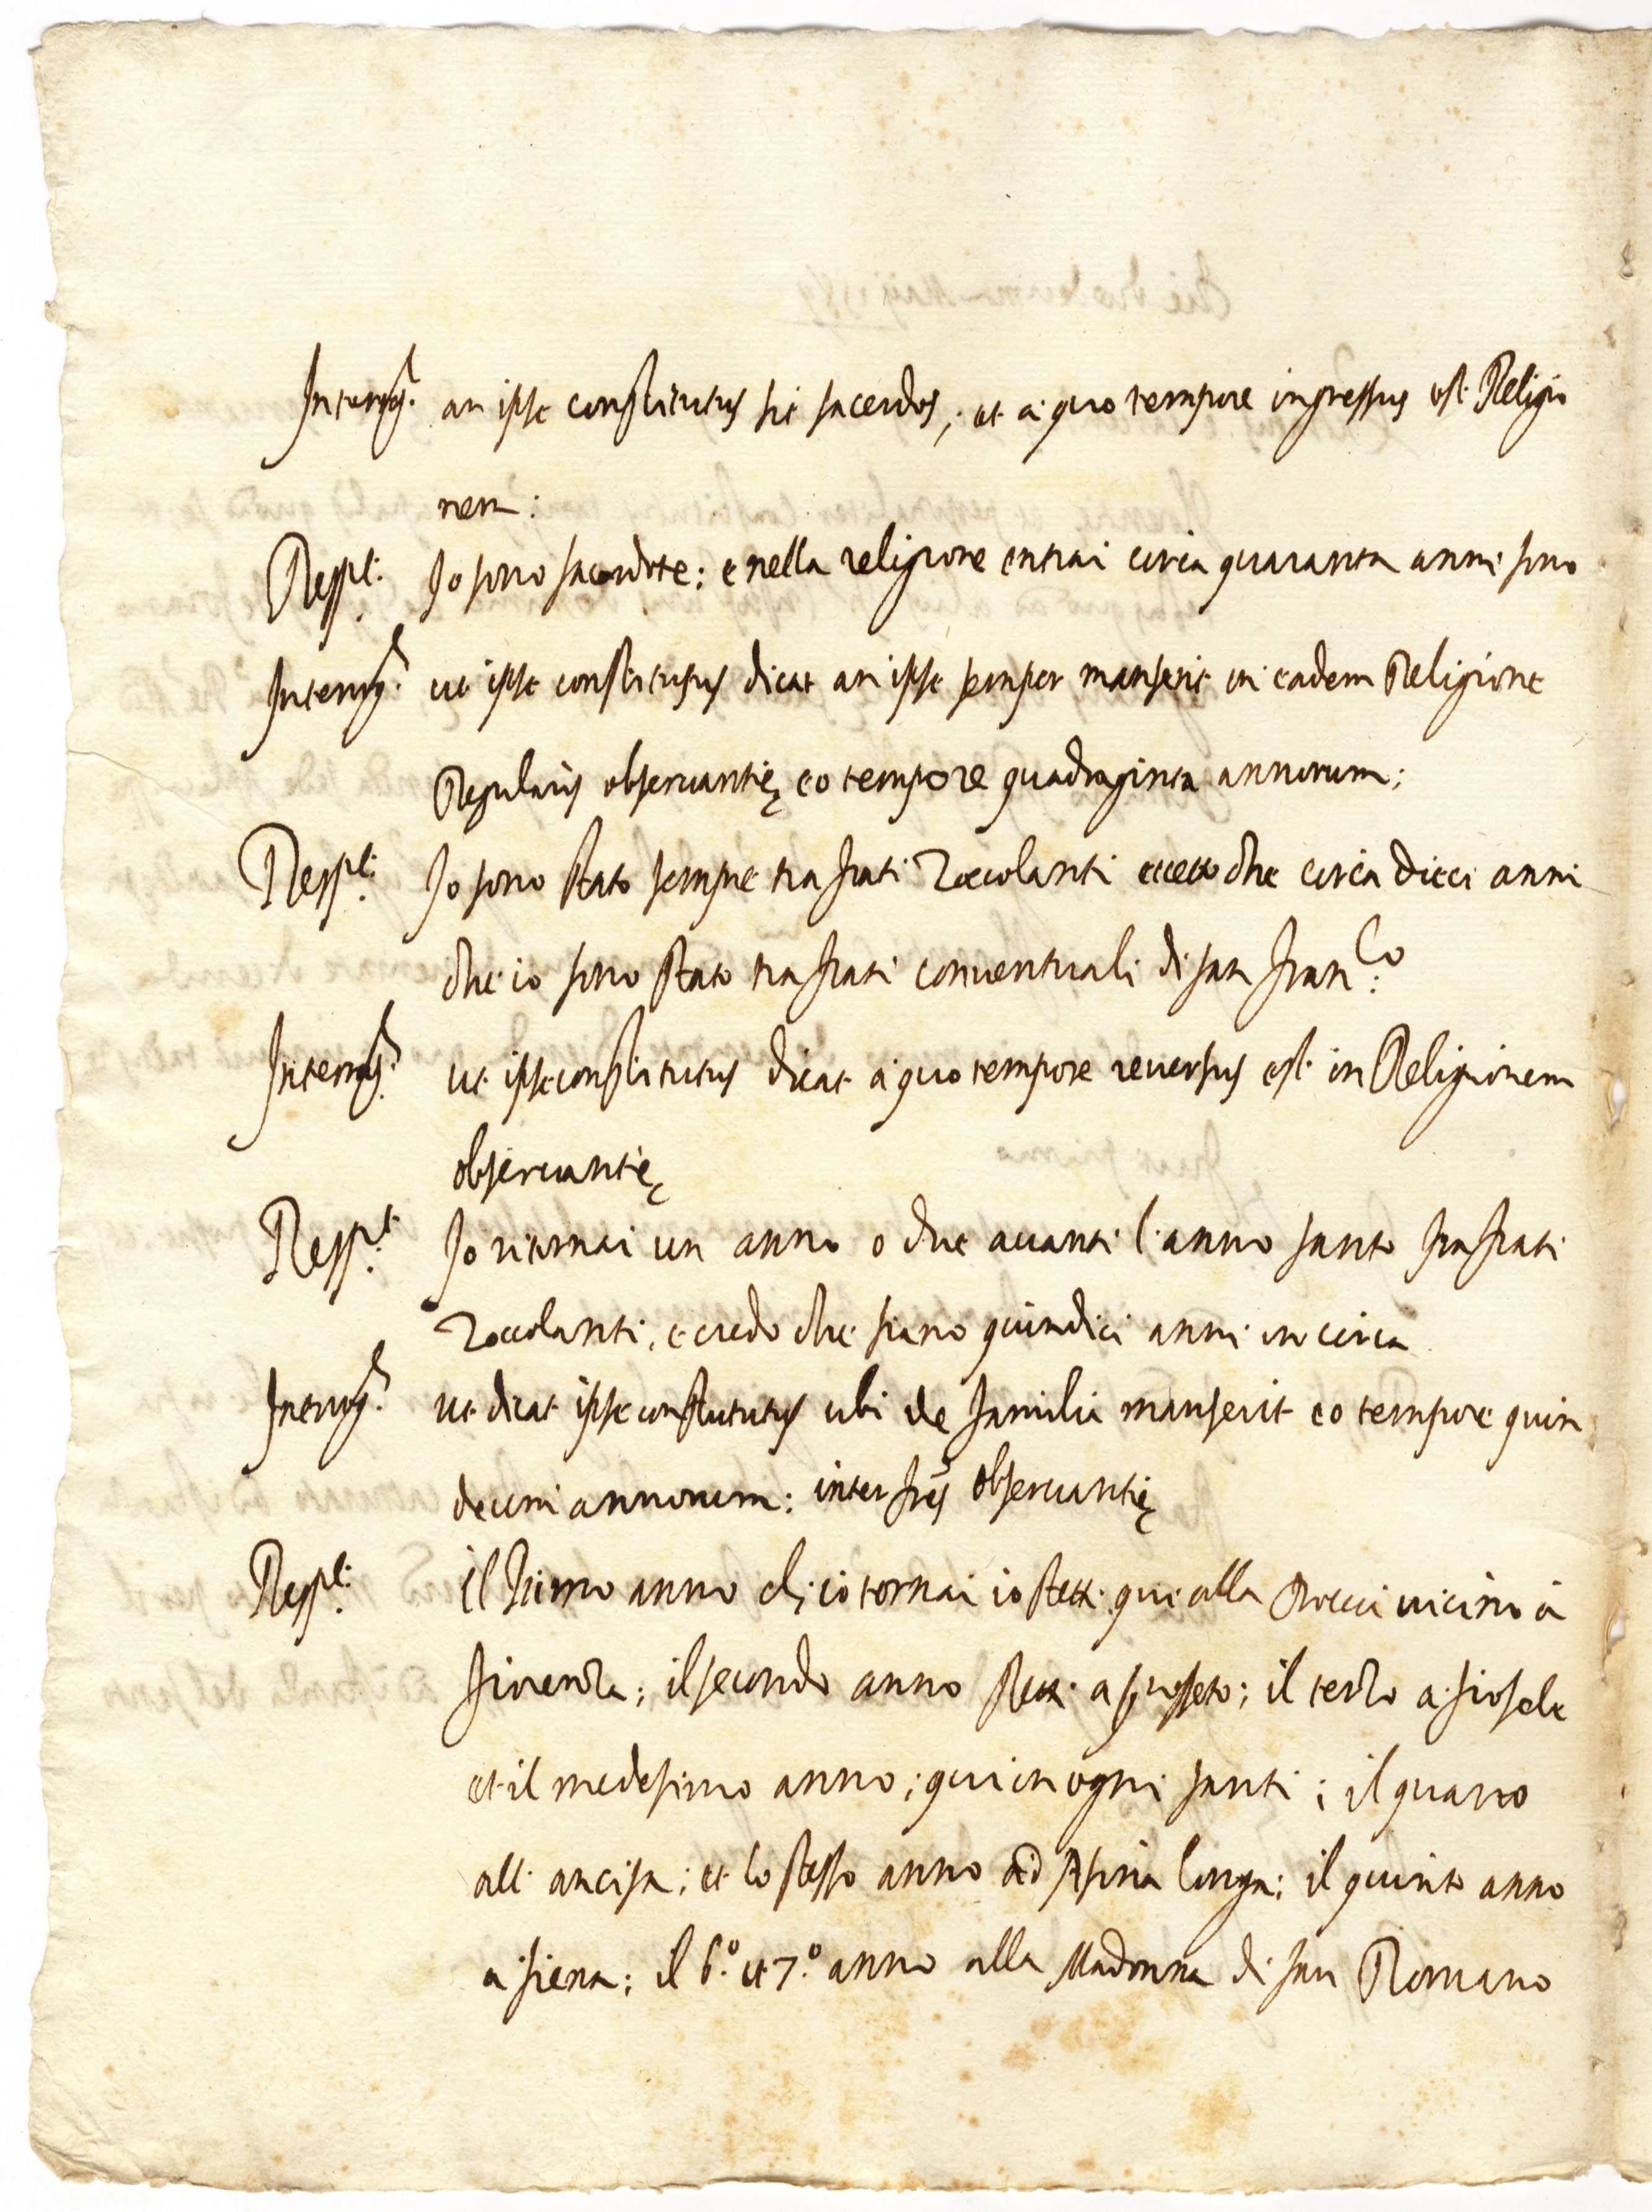 Interrog. an ipse constitutus sit sacerdos, et a quo tempore ingressus est Religio
nem:
Respt. Io sono sacerdote: e nella religione entrai circa quaranta anni sono
Interrog. ut ipse constitutus dicat an ipse semper manserit in eadem Religione
Regularis observantię eo tempore quadraginta annorum;
Respt. Io sono stato sempre tra frati Zoccolanti eccetto che circa dieci anni
che io sono stato tra frati conventuali di san Fran.co
Interrog. ut ipse constitutus dicat a quo tempore reversus est in Religionem
observantię
Respt. Io ritornai un anno o due avanti l'anno santo fra frati
Zoccolanti, e credo che siano quindici anni in circa
Interrog. ut dicat ipse constitutus ubi de familia manserit eo tempore quin
decim annorum: inter frēs observantię
Respt. Il primo anno ch'io tornai io stetti qui alla vicino à
Firenza; il secondo anno stetti a grosseto; il terzo a fiesole
et il medesimo anno; qui in ogni santi; il quarto
all'ancisa; et lo stesso anno ad Asina longa; il quinto anno
a siena; il 6.o et 7.o anno alla Madonna di san Romano